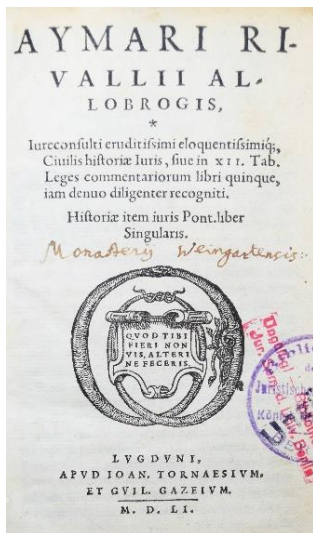 AYMARI RI-
VALLII AL-
LOBROGIS,
*
Iureconsulti eruditissimi eloquentissimiq́;,
Ciuilis historiæ Iuris, siue in XII. Tab.
Leges commentariorum libri quinque,
iam denuo diligenter recogniti.
Historiæ item iuris Pont. liber
Singularis.
Monasterij Weingartensis.
QVOD TIBI
FIERI NON
VIS, ALTERI
NE FECERIS.
Juristische
LVGDVNI,
APVD IOAN. TORNAESIVM.
ET GVIL. GAZEIVM.
M. D. LI.